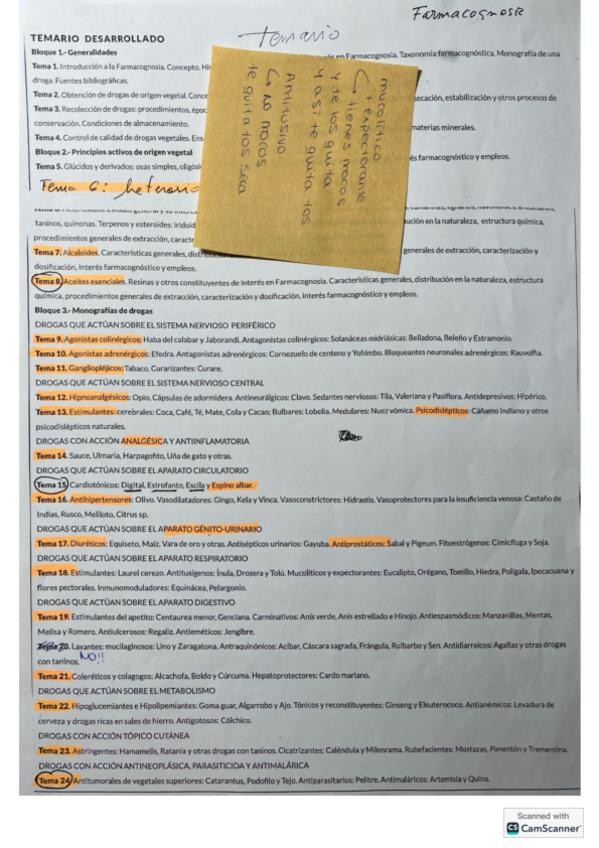 Farmacognosia
Temario
TEMARIO DESARROLLADO
Bloque 1.- Generalidades
en Farmacognosia. Taxonomía farmacognóstica. Monografía de una
Tema 1. Introducción a la Farmacognosia. Concepto.
droga. Fuentes bibliográficas.
Tema 2. Obtención de drogas de origen vegetal.
secación, estabilización y otros procesos de
Tema 3. Recolección de drogas: procedimientos,
conservación. Condiciones de almacenamiento.
materias minerales.
Tema 4. Control de calidad de drogas vegetales.
Bloque 2.- Principios activos de origen vegetal
és farmacognóstico y empleos.
Tema 5. Glúcidos y derivados: osas simples,
Tema 6: heterosi
mucolítico
+ expectorante
↳ tienes mocos
y te los quita
y así te quita tos
Antitusivo
↳ no mocos
te quita tos seca
ución en la naturaleza, estructura química,
taninos, quinonas. Terpenos y esteroides:
procedimientos generales de extracción,
Tema 7. Alcaloides. Características generales,
generales de extracción, caracterización y
dosificación, interés farmacognóstico y empleos.
Tema 8. Aceites esenciales. Resinas y otros constituyentes de interés en Farmacognosia. Características generales, distribución en la naturaleza, estructura
química, procedimientos generales de extracción, caracterización y dosificación, interés farmacognóstico y empleos.
Bloque 3.- Monografías de drogas
DROGAS QUE ACTÚAN SOBRE EL SISTEMA NERVIOSO PERIFÉRICO
Tema 9. Agonistas colinérgicos: Haba del calabar y Jaborandi. Antagonistas colinérgicos: Solanáceas midriásicas: Belladona, Beleño y Estramonio.
Tema 10. Agonistas adrenérgicos: Efedra. Antagonistas adrenérgicos: Cornezuelo de centeno y Yohimbo. Bloqueantes neuronales adrenérgicos: Rauvolfia.
Tema 11. Gangliopléjicos: Tabaco. Curarizantes: Curare.
DROGAS QUE ACTÚAN SOBRE EL SISTEMA NERVIOSO CENTRAL
Tema 12. Hipnoanalgésicos: Opio, Cápsulas de adormidera. Antineurálgicos: Clavo. Sedantes nerviosos: Tila, Valeriana y Pasiflora. Antidepresivos: Hipérico.
Tema 13. Estimulantes: cerebrales: Coca, Café, Té, Mate, Cola y Cacao; Bulbares: Lobelia. Medulares: Nuez vómica. Psicodislépticos: Cáñamo indiano y otros
psicodislépticos naturales.
DROGAS CON ACCIÓN ANALGÉSICA Y ANTIINFLAMATORIA
Tema 14. Sauce, Ulmaria, Harpagofito, Uña de gato y otras.
DROGAS QUE ACTÚAN SOBRE EL APARATO CIRCULATORIO
Tema 15. Cardiotónicos: Digital, Estrofanto, Escila y Espino albar.
Tema 16. Antihipertensores: Olivo. Vasodilatadores: Gingo, Kela y Vinca. Vasoconstrictores: Hidrastis. Vasoprotectores para la insuficiencia venosa: Castaño de
Indias, Rusco, Meliloto, Citrus sp.
DROGAS QUE ACTÚAN SOBRE EL APARATO GÉNITO-URINARIO
Tema 17. Diuréticos: Equiseto, Maíz, Vara de oro y otras. Antisépticos urinarios: Gayuba. Antiprostáticos: Sabal y Pigeum. Fitoestrógenos: Cimicífuga y Soja.
DROGAS QUE ACTÚAN SOBRE EL APARATO RESPIRATORIO
Tema 18. Estimulantes: Laurel cerezo. Antitusígenos: Ínula, Drosera y Tolú. Mucolíticos y expectorantes: Eucalipto, Orégano, Tomillo, Hiedra, Polígala, Ipecacuana y
flores pectorales. Inmunomoduladores: Equinácea, Pelargonio.
DROGAS QUE ACTÚAN SOBRE EL APARATO DIGESTIVO
Tema 19. Estimulantes del apetito: Centaurea menor, Genciana. Carminativos: Anís verde, Anís estrellado e Hinojo. Antiespasmódicos: Manzanillas, Mentas,
Melisa y Romero. Antiulcerosos: Regaliz. Antieméticos: Jengibre.
Tema 20. Laxantes: mucilaginosos: Lino y Zaragatona. Antraquinónicos: Acíbar, Cáscara sagrada, Frángula, Ruibarbo y Sen. Antidiarreicos: Agallas y otras drogas
con taninos. NO!!
Tema 21. Coleréticos y colagogos: Alcachofa, Boldo y Cúrcuma. Hepatoprotectores: Cardo mariano.
DROGAS QUE ACTÚAN SOBRE EL METABOLISMO
Tema 22. Hipoglucemiantes e Hipolipemiantes: Goma guar, Algarrobo y Ajo. Tónicos y reconstituyentes: Ginseng y Eleuterococo. Antianémicos: Levadura de
cerveza y drogas ricas en sales de hierro. Antigotosos: Cólchico.
DROGAS CON ACCIÓN TÓPICO CUTÁNEA
Tema 23. Astringentes: Hamamelis, Ratania y otras drogas con taninos. Cicatrizantes: Caléndula y Milenrama. Rubefacientes: Mostazas, Pimentón y Trementina.
DROGAS CON ACCIÓN ANTINEOPLÁSICA, PARASITICIDA Y ANTIMALÁRICA
Tema 24. Antitumorales de vegetales superiores: Catarantus, Podofilo y Tejo. Antiparasitarios: Pelitre. Antimaláricos: Artemisia y Quina.
Scanned with
CS CamScanner